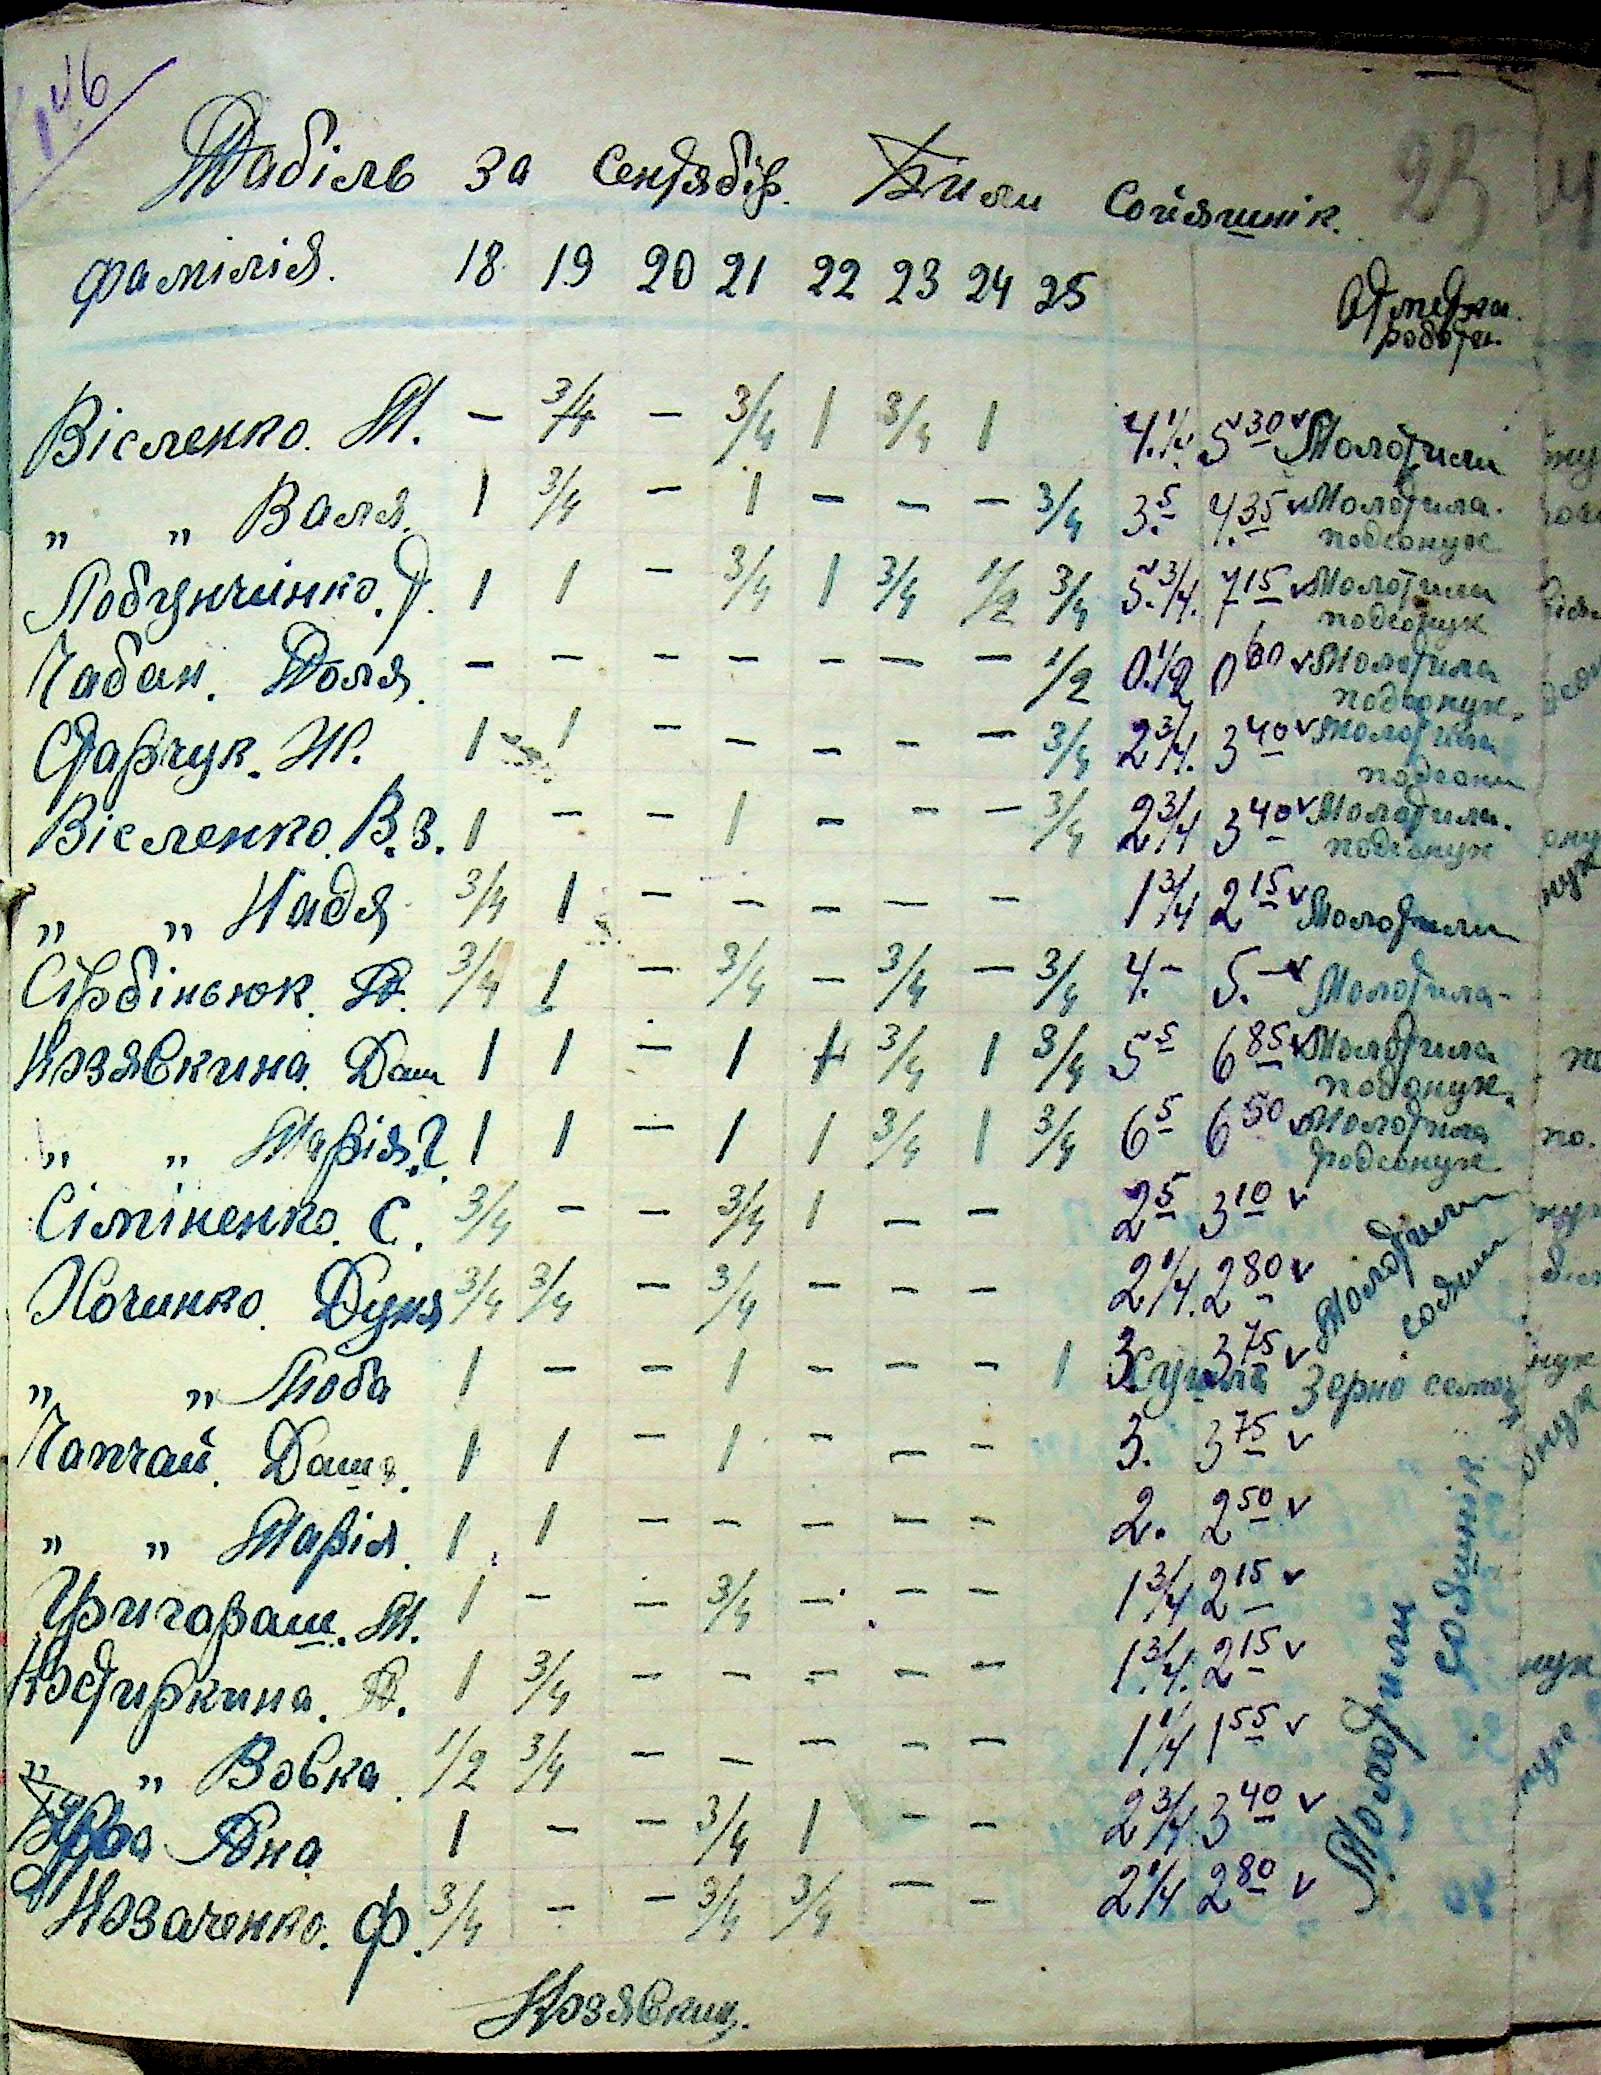 146
Табіль за сентябір. Били сойяшнік. 23
фамілія. 18 19 20 21 22 23 24 25 Отметка.
работи.
Вісленко. М. — 3/4 — 3/4 1 3/4 1 4.1/4. 5 30 v Молотили
„ „ Валя. 1 3/4 — 1 — — — 3/4 3.5 4.35 v Молотила.
подсонух
Лобунчінко. Т. 1 1 — 3/4 1 3/4 1/2 3/4 5.3/4. 7 15 v Молотили
подсонух
Чабан. Доля. — — — — — — — 1/2 0.1/2 0 60 v Молотила
подсонух.
Старчук. Н. 1 1 — — — — — 3/4 2 3/4. 3 40 v Молотила
подсони
Вісленко. В.З. 1 — — 1 — — — 3/4 2 3/4 3 40 v Молотили.
подсонух
„ „ Надя 3/4 1 — — — — — 1 3/4 2 15 v Молотили
Сірбіньюк. А. 3/4 1 — 3/4 — 3/4 — 3/4 4.— 5.— v Молотила-
Козявкина. Даш 1 1 — 1 1 3/4 1 3/4 5 5 6 85 v Молотила
подсонух.
„ „ Марія.? 1 1 — 1 1 3/4 1 3/4 6 5 6 50 v Молотила
подсонух.
Сіміненко. С. 3/4 — — 3/4 1 — — 2 5 3 10 v Молотили
сояшн
Хочинко. Дуня 3/4 3/4 — 3/4 — — — 2 1/4. 2 80 v
„ „ Люба 1 — — 1 — — — 1 3. 3 75 v сушила Зерно
Чапчай. Даша. 1 1 — 1 — — — 3. 3 75 v
„ „ Марія. 1 1 — — — — — 2. 2 50 v
Григораш. М. 1 — — 3/4 — — — 1 3/4 2 15 v
Костиркина. А. 1 3/4 — — — — — 1.3/4. 2 15 v
„ „ Вовка. 1/2 3/4 — — — — — 1 1/4 1 55 v
Ана 1 — — 3/4 1 — — 2 3/4 3 40 v
Козаченко. Ф. 3/4 — — 3/4 3/4 — — 2 1/4 2 80 v
Молотили сояшнік.
Козявкин.